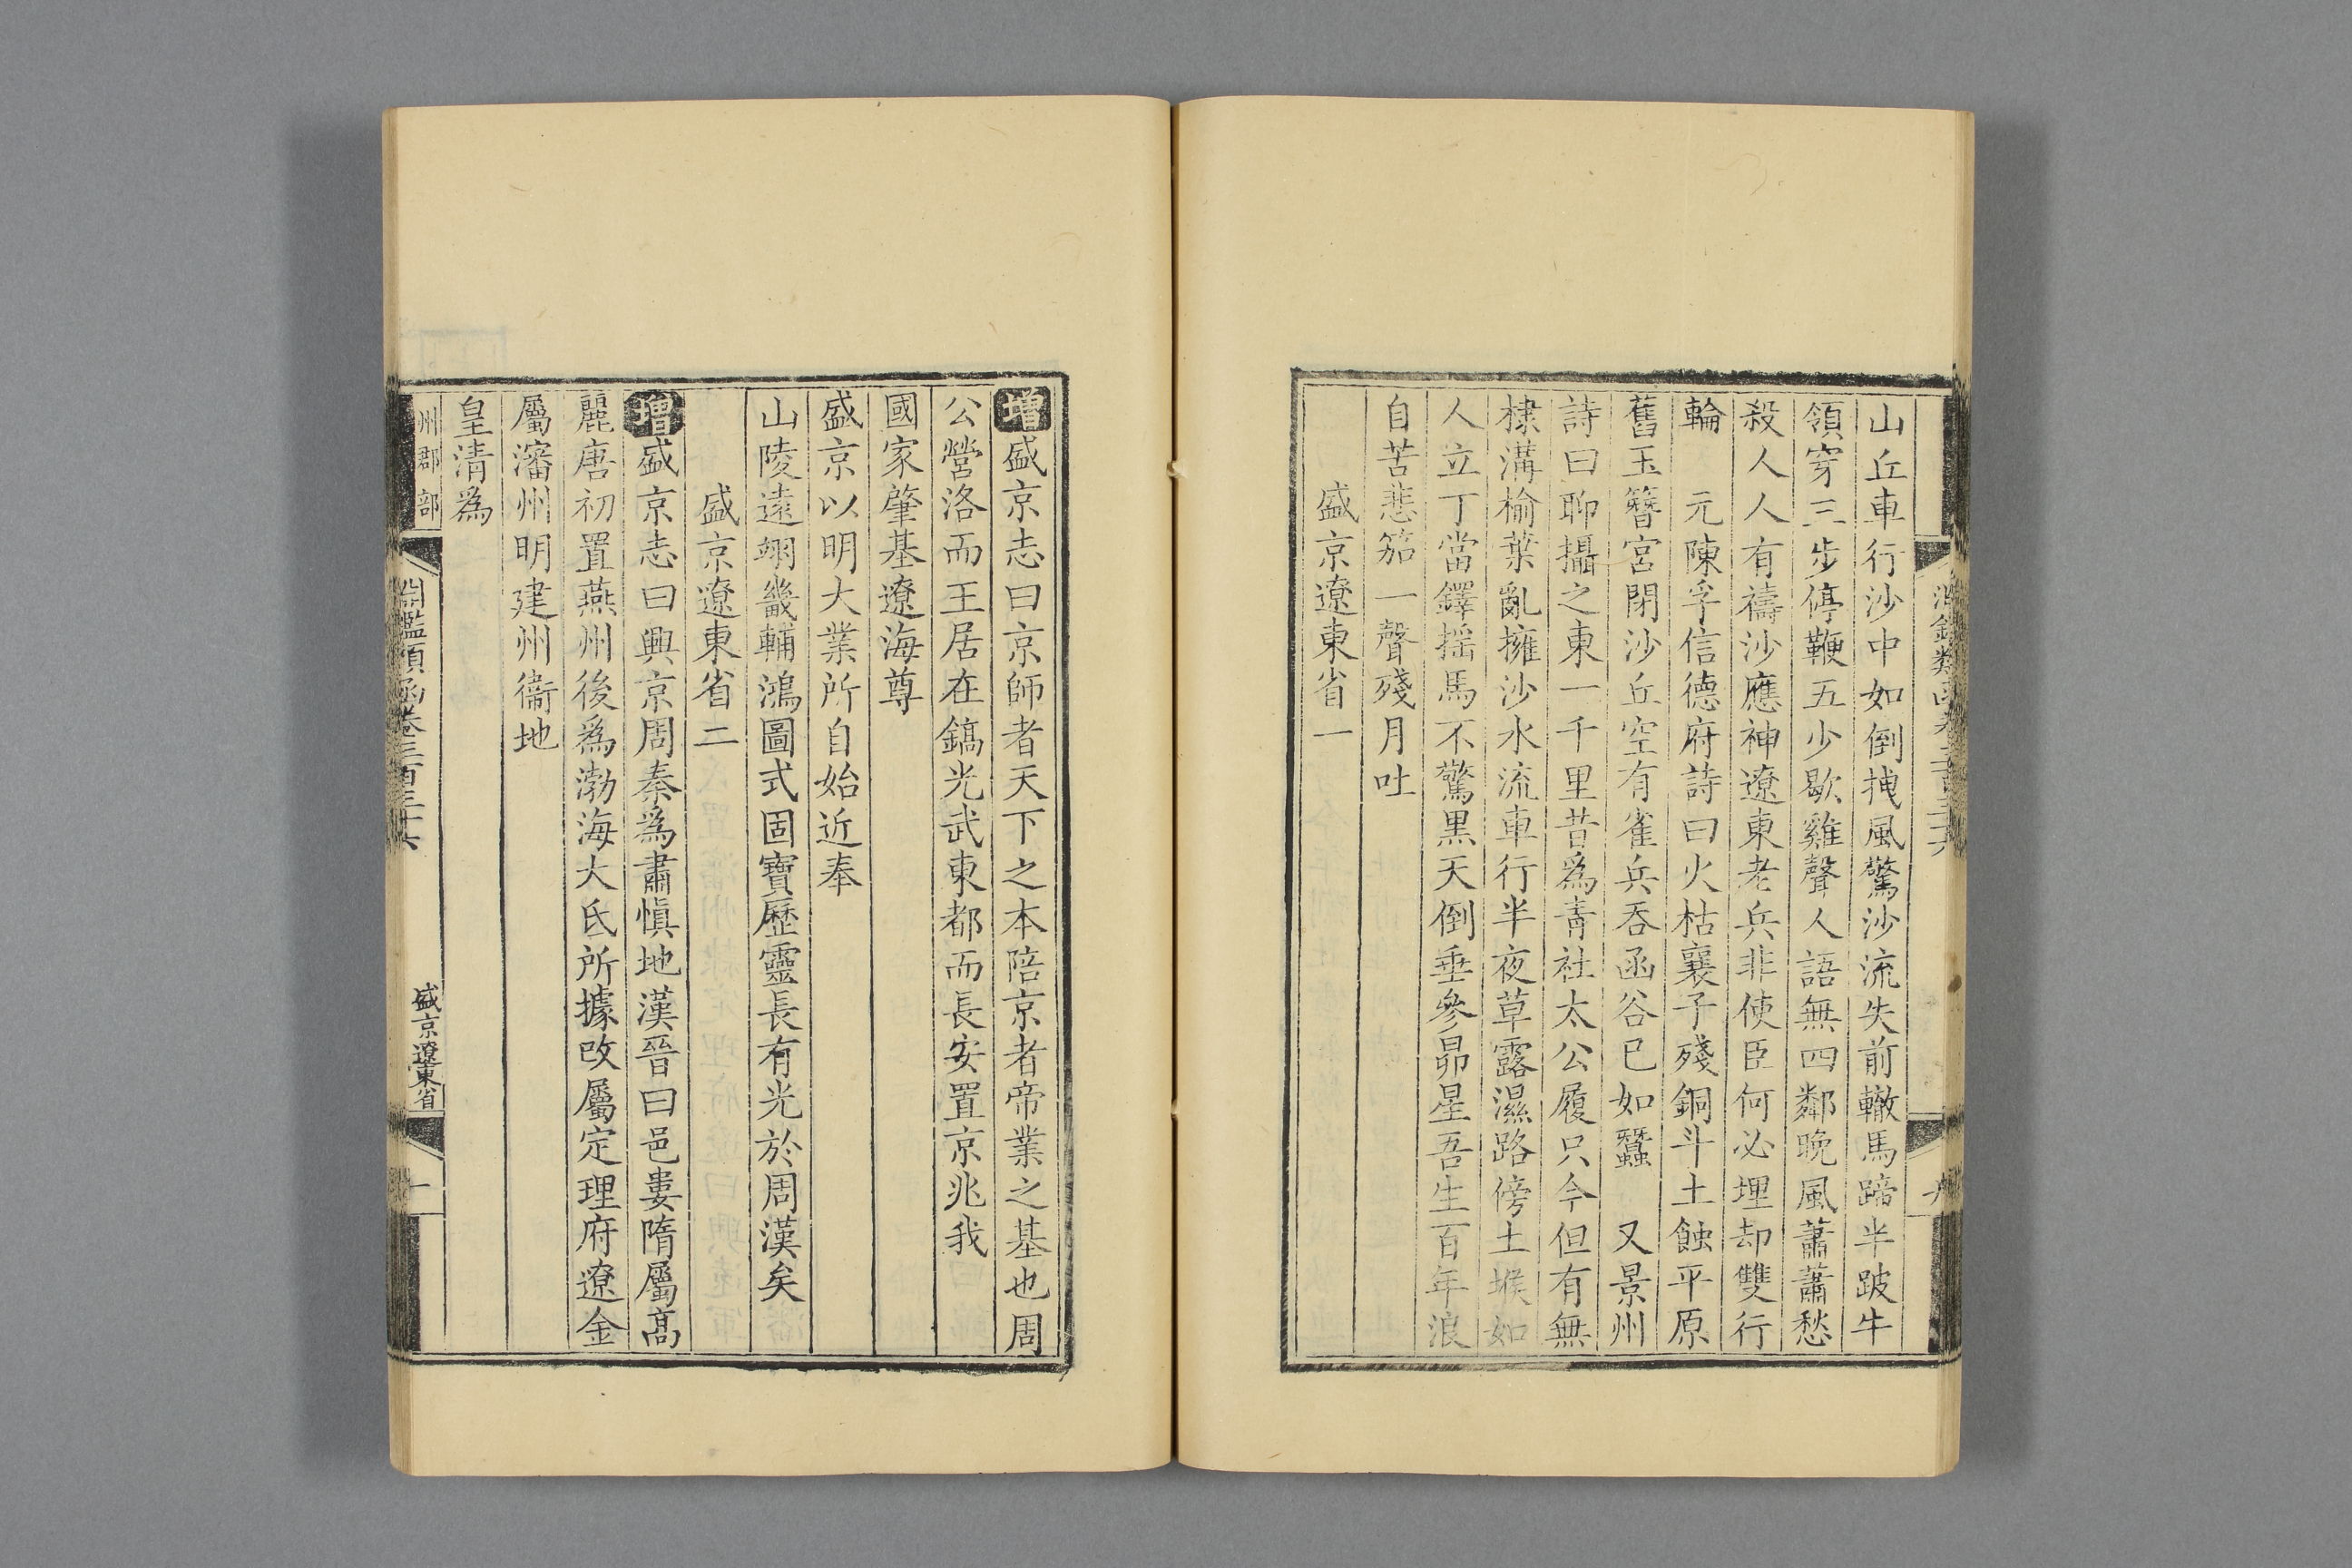 山丘車行沙中如倒拽風驚沙流失前轍馬蹄半跛牛
領穿三步停鞭五少歇雞聲人語無四鄰晚風蕭蕭愁
殺人人有禱沙應神遼東老兵非使臣何必埋却雙行
輪　元陳孚信德府詩曰火枯襄子殘銅斗土蝕平原
舊玉簪宮閉沙丘空有雀兵吞函谷已如蠶　又景州
詩曰聊攝之東一千里昔爲青社太公履只今但有無
棣溝榆葉亂擁沙水流車行半夜草露濕路傍土堠如
人立丁當鐸搖馬不驚黒天倒垂參昴星吾生百年浪
自苦悲笳一聲殘月吐
盛京遼東省一
增盛京志曰京師者天下之本陪京者帝業之基也周
公營洛而王居在鎬光武東都而長安置京兆我
國家肇基遼海尊
盛京以明大業所自始近奉
山陵遠翊畿輔鴻圖式固寶歷靈長有光於周漢矣
盛京遼東省二
增盛京志曰興京周秦爲肅愼地漢晉曰邑婁隋屬髙
麗唐初置燕州後爲渤海大氏所據改屬定理府遼金
屬瀋州明建州衞地
皇清爲
州郡部
淵鑑類函卷三百三十六
盛京遼東省
一